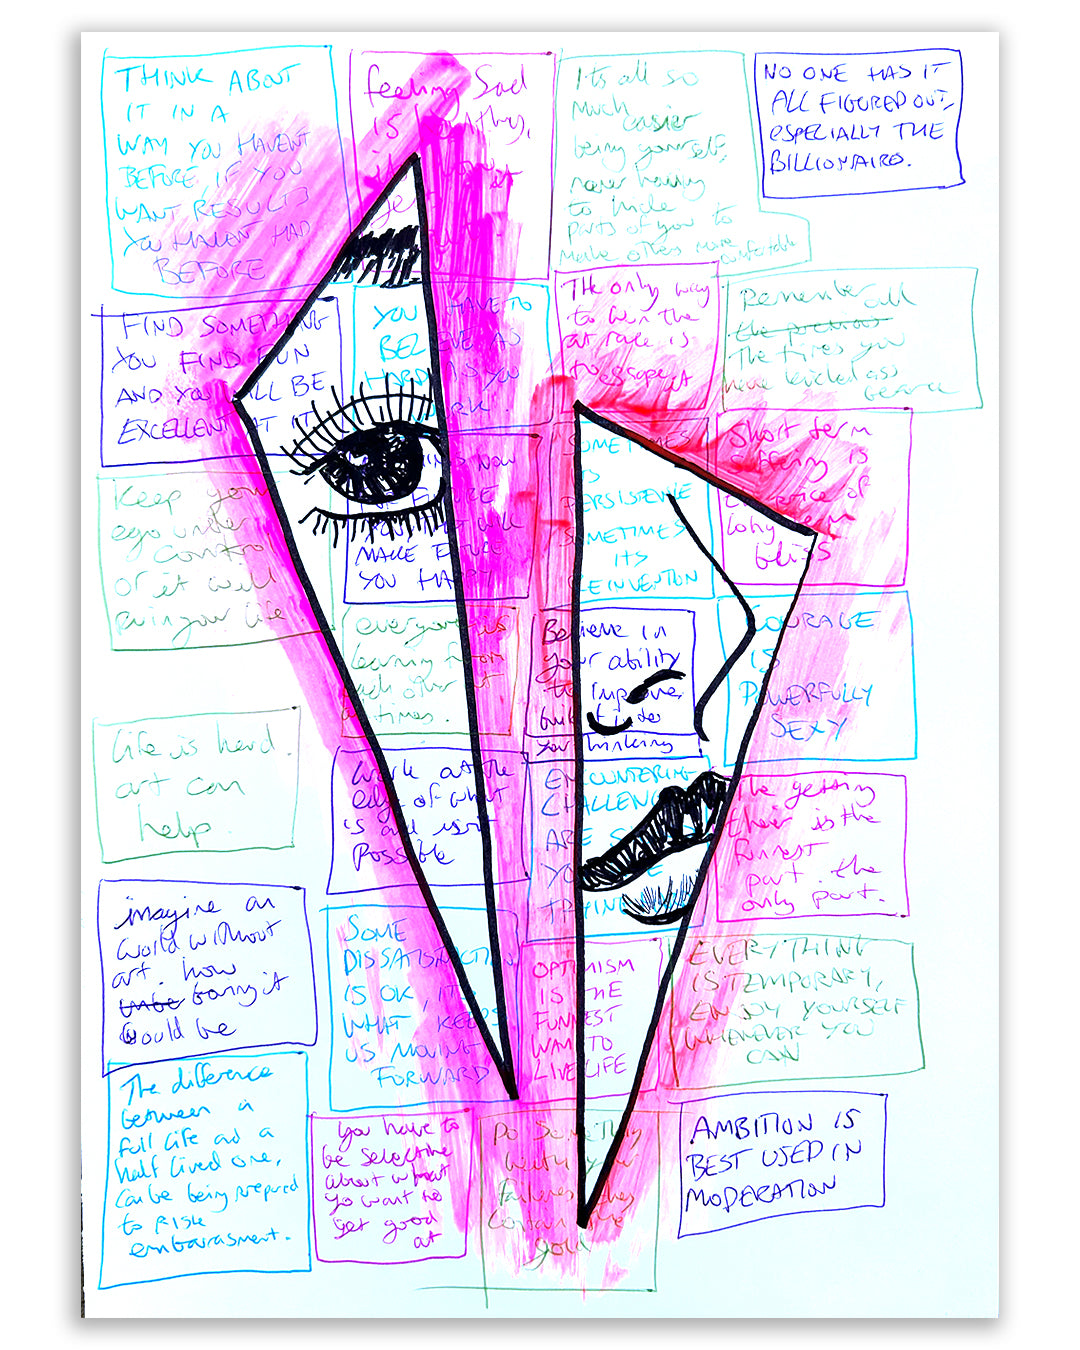 THINK ABOUT
IT IN A
WAY YOU HAVENT
BEFORE, IF YOU
WANT RESULTS
YOU HAVENT HAD
BEFORE
feeling Sad
is healthy,
Its all so
much easier
being yourself,
never having
to hide
parts of you to
make others more comfortable
NO ONE HAS IT
ALL FIGURED OUT,
ESPECIALLY THE
BILLIONAIRES.
FIND SOMETHING
YOU FIND FUN
AND YOU ALL BE
EXCELLENT AT IT
YOU HAVE TO
BELIEVE AS
HARD AS YOU
WORK.
The only way
to win the
rat race is
to escape it
Remember all
the previous
The times you
have kicked ass
Keep your
ego under
control
or it will
ruin your life
NOW
FUTURE
MAKE FUTURE
YOU HAPPY
SOMETIMES
ITS
PERSISTENCE
SOMETIMES
ITS
REINVENTION
Short term
suffering is
the price of
long term
bliss
everyone is
learning from
each other at
all times.
Believe in
your ability
to improve,
your thinking
COURAGE
IS
POWERFULLY
SEXY
life is hard.
art can
help.
Work at the
edge of what
is and isnt
possible
ENCOUNTERING
CHALLENGES
ARE
YOU
TRYING
The getting
their is the
funnest
part. the
only part.
imagine an
world without
art. how
boring it
would be
SOME
DISSATISFACTION
IS OK, ITS
WHAT KEEPS
US MOVING
FORWARD
OPTIMISM
IS THE
FUNNEST
WAY TO
LIVE LIFE
EVERYTHING
IS TEMPORARY,
ENJOY YOURSELF
WHENEVER YOU
CAN
The difference
between a
full life and a
half lived one,
can be being prepared
to risk
embarrasment.
you have to
be selective
about what
yo want to
get good
at
Do Something
with your
failures they
contain the
gold
AMBITION IS
BEST USED IN
MODERATION